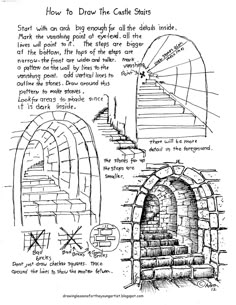 How to Draw The Castle Stairs
Start with an arch big enough for all the details inside.
Mark the vanishing point at eye level. all the
lines will point to it. The steps are bigger
at the bottom, the tops of the steps are
narrow. the front are wide and taller.
a pattern on the wall by lines to the
vanishing point. add vertical lines to
outline the stones. Draw around this
pattern to make stones.
Look for areas to shade since
it is dark inside.
mark
vanishing
point
there will be more
detail in the foreground.
the stones for up
the steps are
smaller.
Not
bricks
Not
bricks
bricks
Don't just draw checker squares. Trace
around the lines to show the mortar between.
drawinglessonsfortheyoungartist.blogspot.com